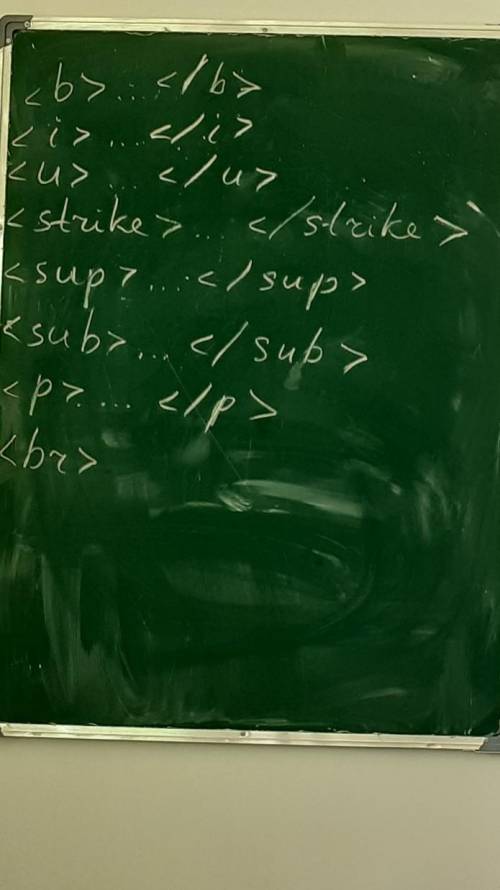 <b>...</b>
<i>...</i>
<u>...</u>
<strike>...</strike>
<sup>...</sup>
<sub>...</sub>
<p>...</p>
<br>